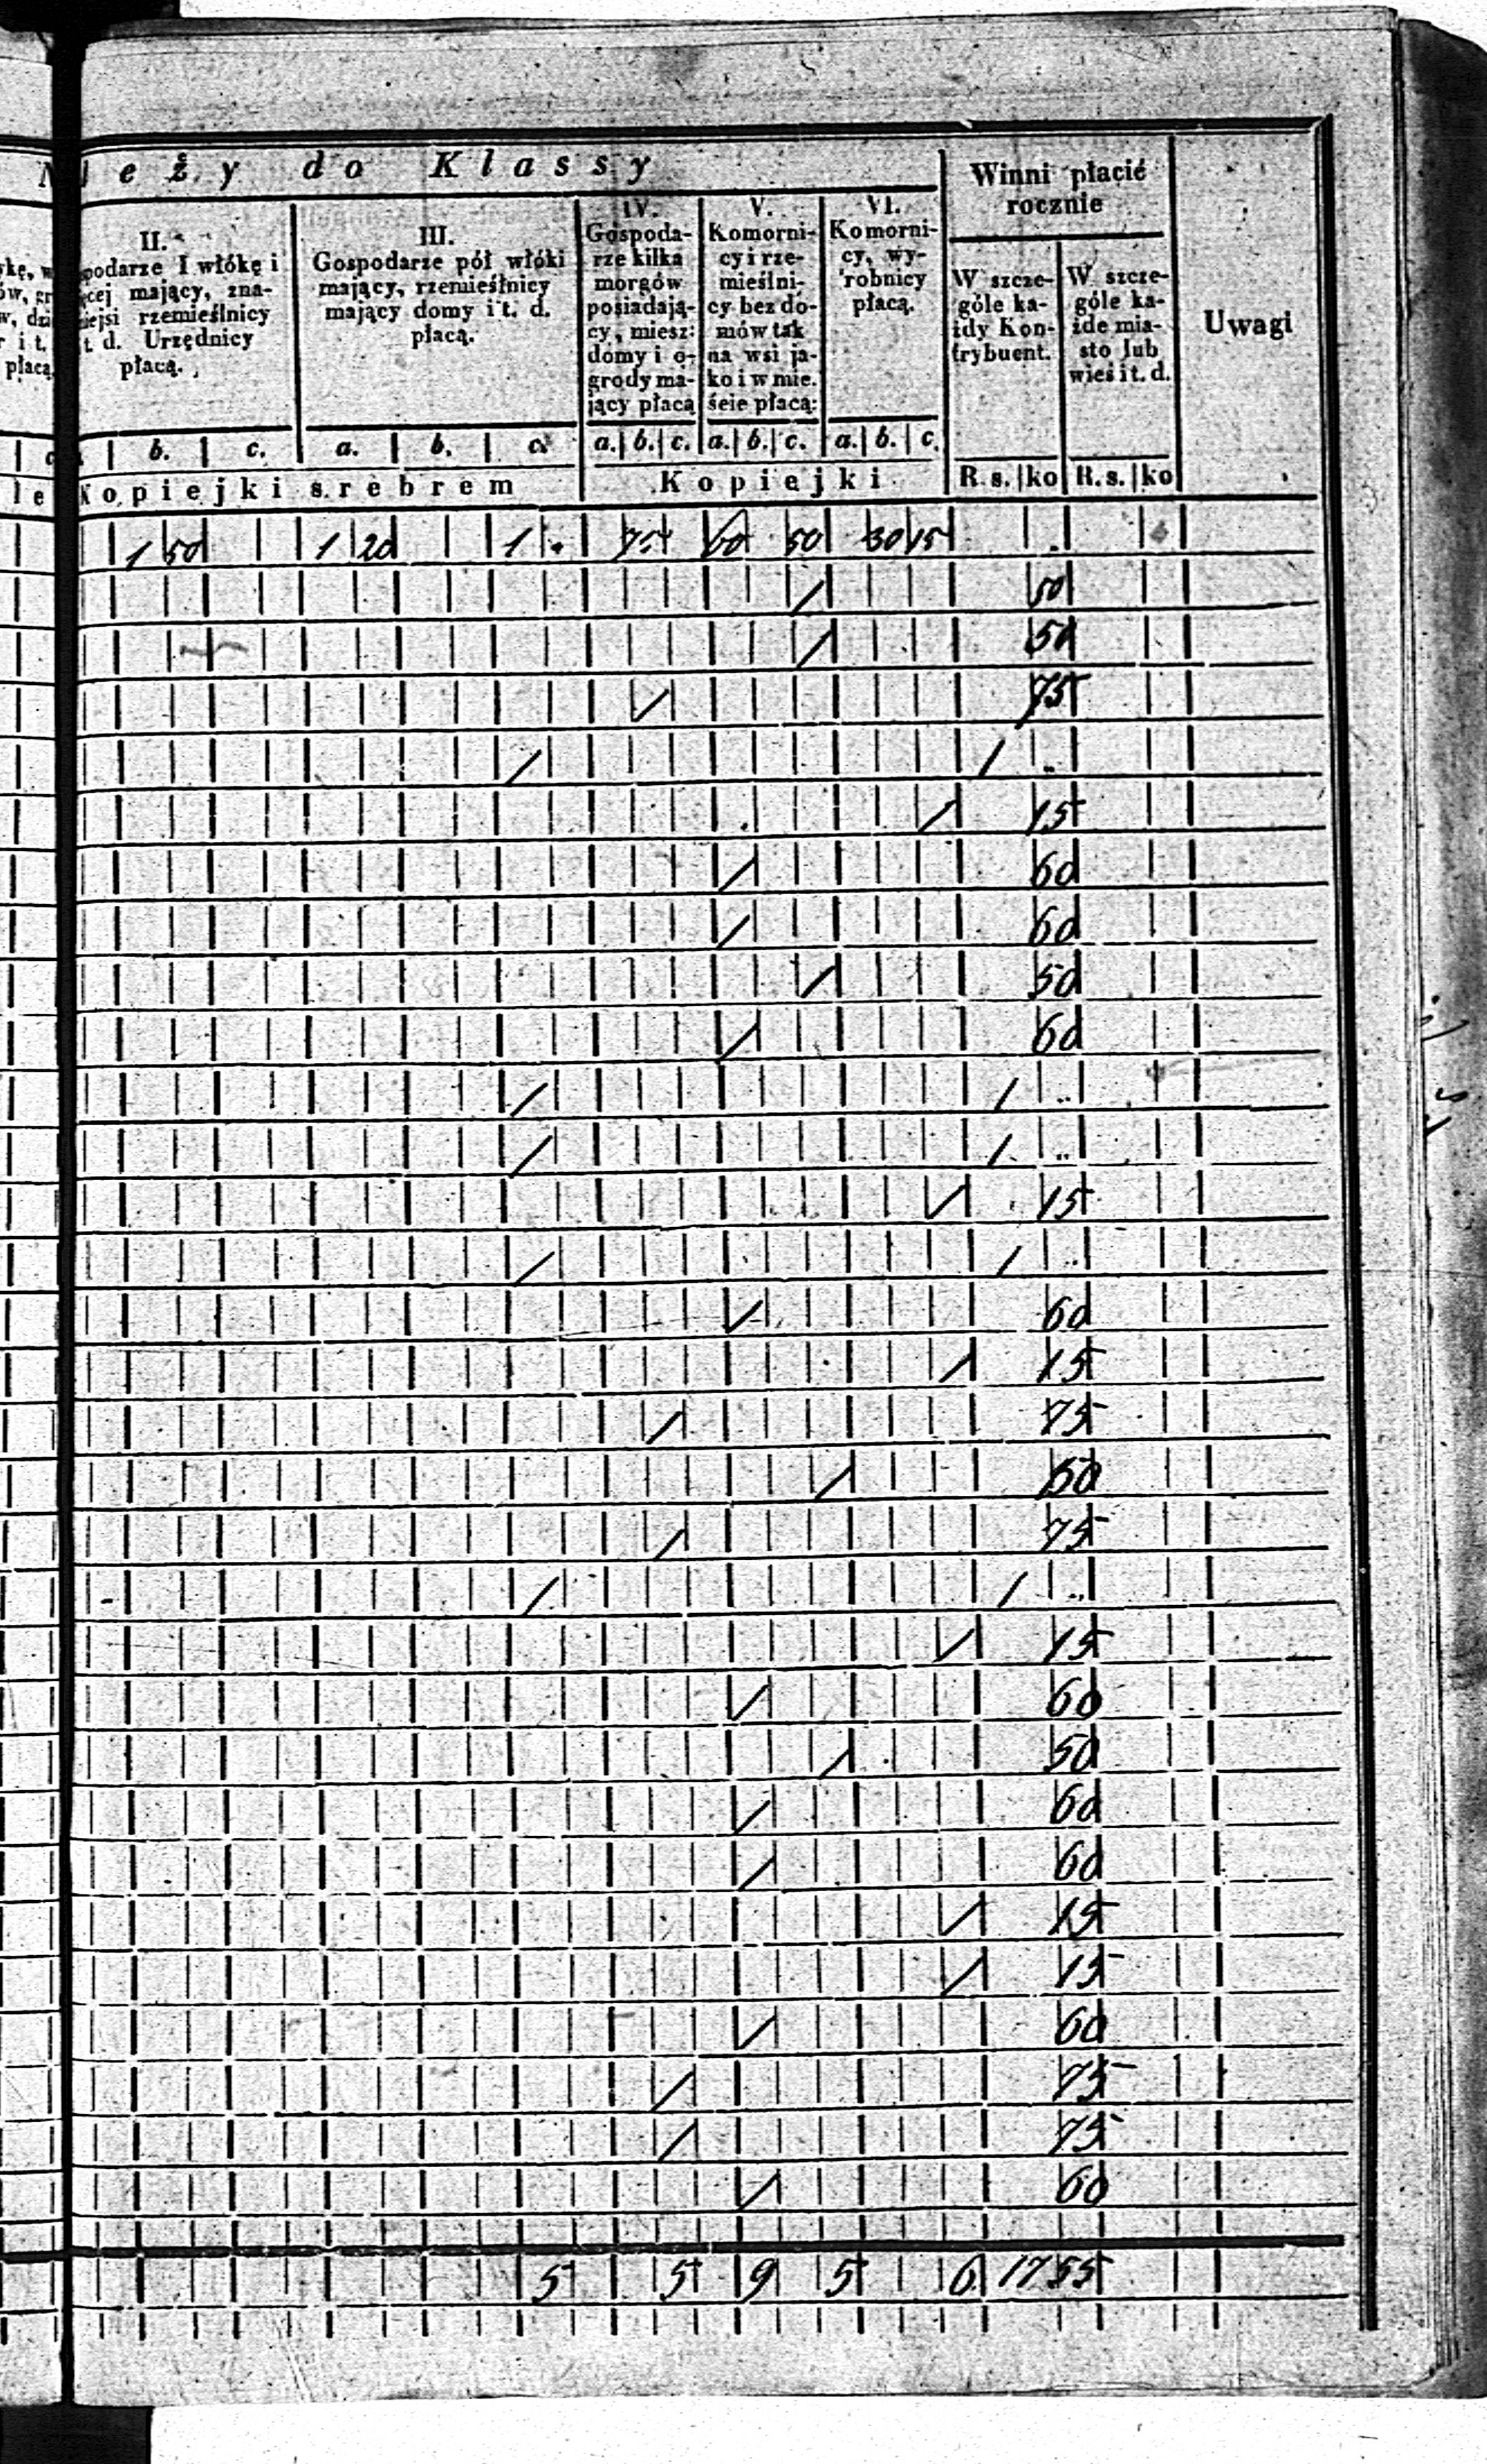 N leży do Klassy
Winni płacić rocznie
Uwagi
II.
podarze I włókę i
ęcej mający, zna-
niejsi rzemieślnicy
t. d. Urzędnicy
płacą.
III.
Gospodarze pół włóki
mający, rzemieślnicy
mający domy i t. d.
płacą.
IV.
Gospoda-
rze kilka
morgów
posiadają-
cy, miesz:
domy i o-
grody ma-
jący płacą
V.
Komorni-
cy i rze-
mieślni-
cy bez do-
mów tak
na wsi ja-
ko i w mie.
ście płacą:
VI.
Komorni-
cy, wy-
robnicy
płacą.
W szcze-
góle ka-
żdy Kon-
trybuent.
W szcze-
góle ka-
żde mia-
sto lub
wieś i t. d.
b. c. a. b. c. a. b. c. a. b. c. a. b. c.
Kopiejki srebrem Kopiejki R. s. ko R. s. ko
1 50 1 20 1 . 75 60 50 30 15
/ 50
/ 50
/ 75
/ 1 ..
/ 15
/ 60
/ 60
/ 50
/ 60
/ 1 ..
/ 1 ..
/ 15
/ 1 ..
/ 60
/ 15
/ 75
/ 50
/ 75
/ 1 ..
/ 15
/ 60
/ 50
/ 60
/ 60
/ 15
/ 15
/ 60
/ 75
/ 75
/ 60
5 5 9 5 6 17 55